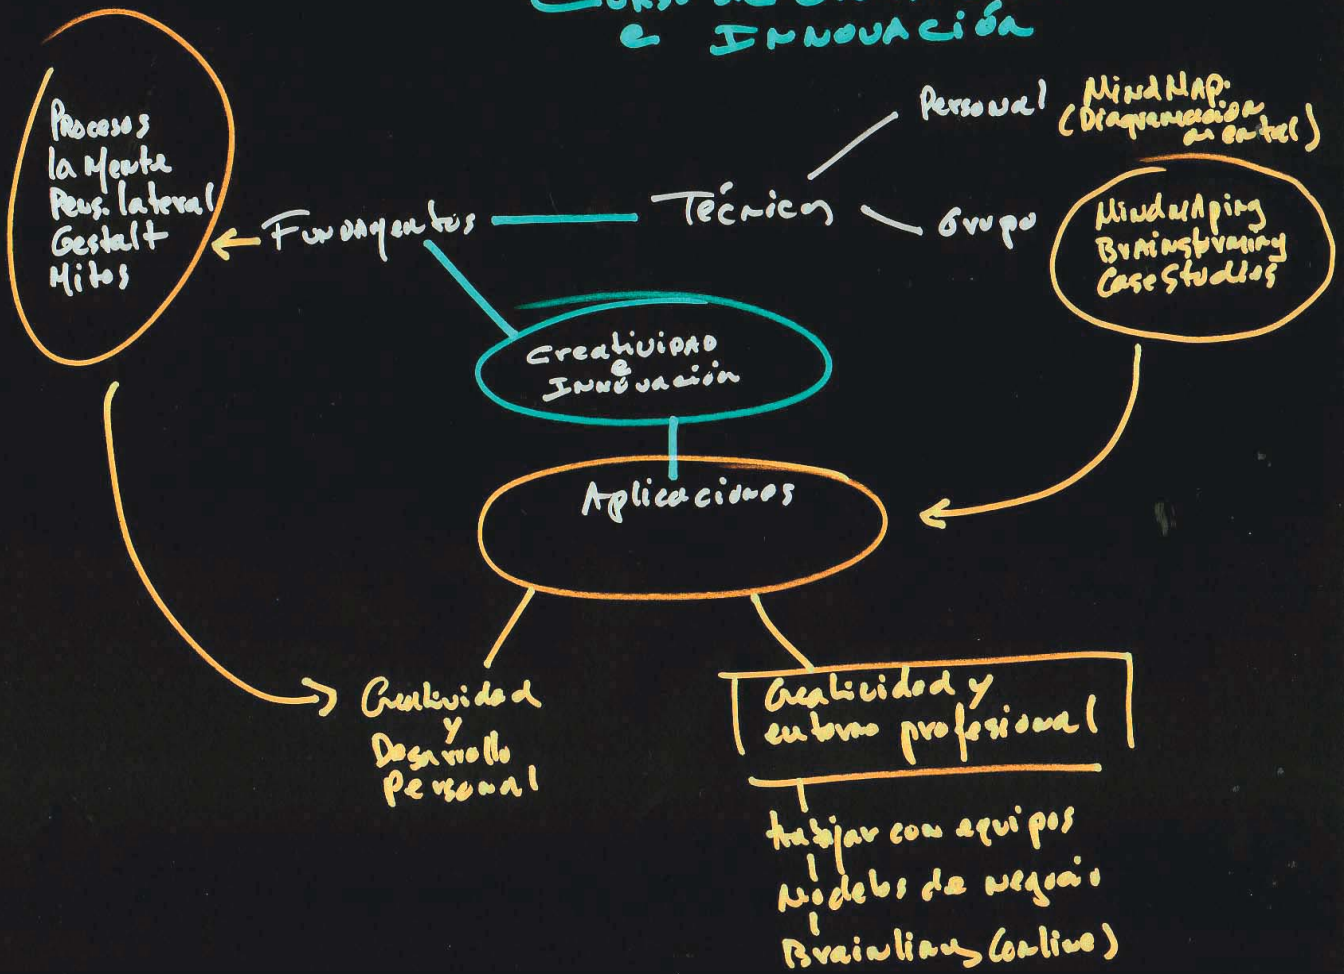 Curso de
e INNOVACIÓN
Procesos
la Mente
Pens. lateral
Gestalt
Mitos
Fundamentos
Técnicas
Personal
MindMap.
(Diagramación
mental)
Grupo
Mindmaping
Brainstorming
Case Studies
Creatividad
e
Innovación
Aplicaciones
Creatividad
y
Desarrollo
Personal
Creatividad y
entorno profesional
trabajar con equipos
Modelos de negocio
(online)